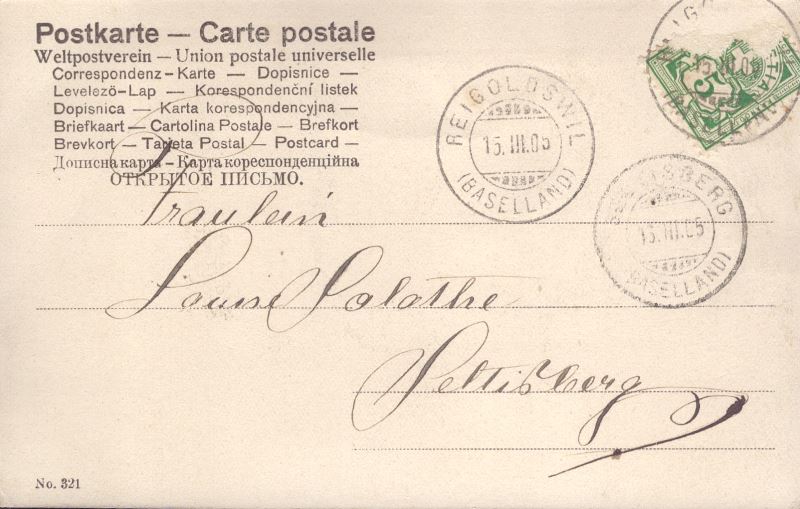 Postkarte — Carte postale
Weltpostverein — Union postale universelle
Correspondenz-Karte — Dopisnice —
Levelezö-Lap — Korespondenční listek
Dopisnica — Karta korespondencyjna —
Briefkaart — Cartolina Postale — Brefkort
Brevkort — Tarjeta Postal — Postcard —
Дописна карта — Карта кореспонденційна
ОТКРЫТОЕ ПИСЬМО.
REIGOLDSWIL
15.III.05
(BASELLAND)
SELTISBERG
15.III.05
(BASELLAND)
5
Fräulein
Louise Salathe
Seltisberg
No. 321